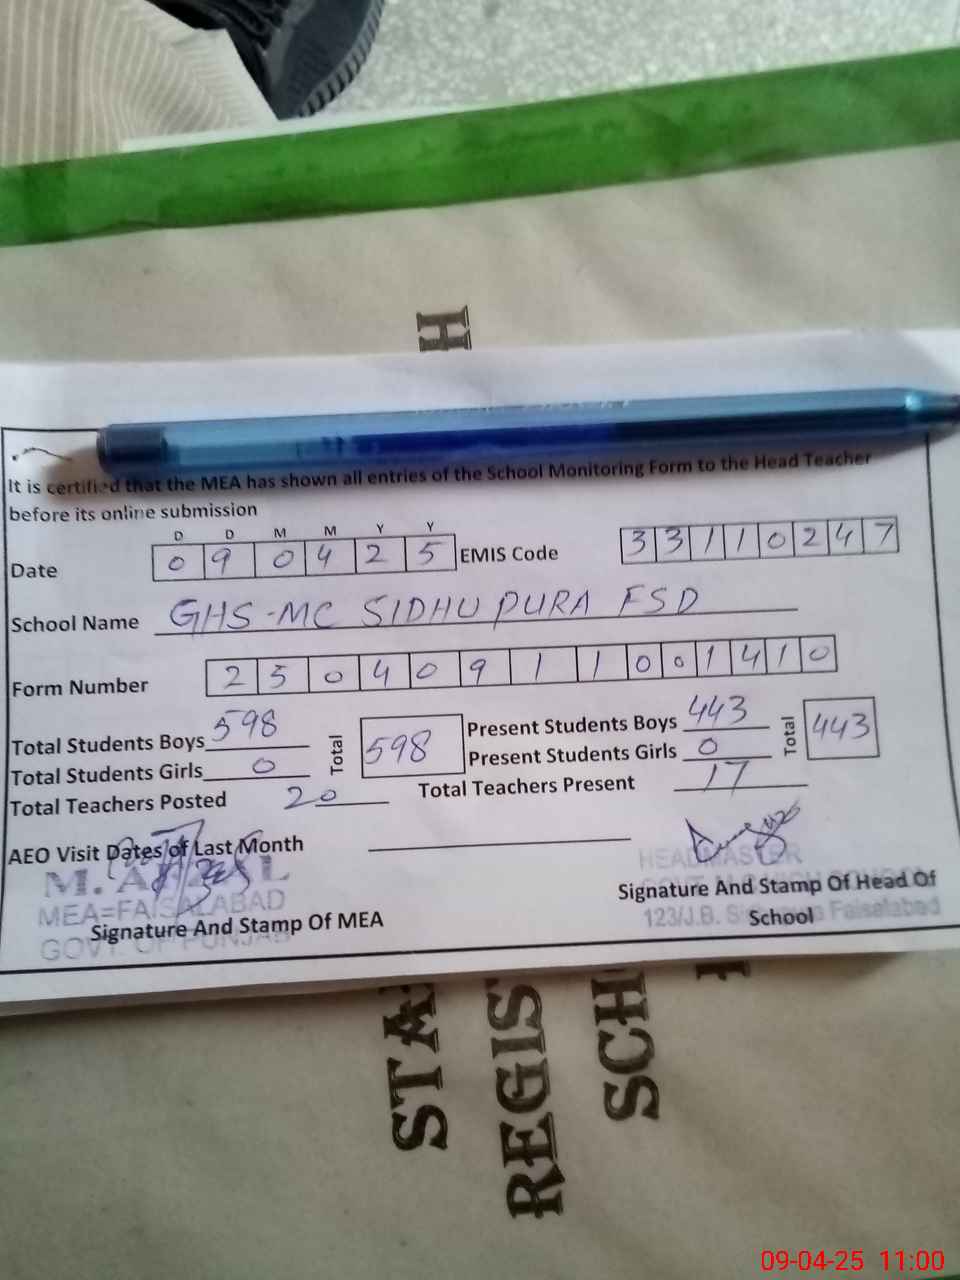 H
It is certified that the MEA has shown all entries of the School Monitoring Form to the Head Teacher
before its online submission
D D M M Y Y
Date 0 9 0 4 2 5 EMIS Code 3 3 1 1 0 2 4 7
School Name GHS-MC SIDHU PURA FSD
Form Number 2 5 0 4 0 9 1 1 0 0 1 4 1 0
Total Students Boys 598 Total 598 Present Students Boys 443 Total 443
Total Students Girls 0 Present Students Girls 0
Total Teachers Posted 20 Total Teachers Present 17
AEO Visit Dates of Last Month
HEADMASTER
MEA=FAISALABAD
Signature And Stamp Of MEA
GOVT. OF PUNJAB
Signature And Stamp Of Head Of
School
123/J.B. Faisalabad
STA
REGIS
SCH
09-04-25 11:00